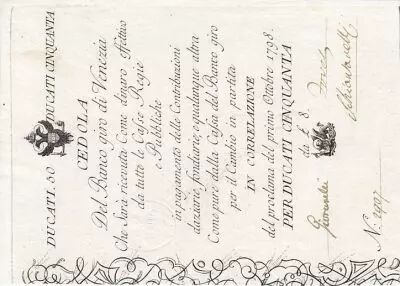 DUCATI 50 DUCATI CINQUANTA
CEDOLA
Del Banco giro di Venezia
Che Sarà ricevuta Come dinaro Effettivo
da tutte le Casse Regie
e Pubbliche
in pagamento delle Contribuzioni
dazziarie, fondiarie, e qualunque altra
Come pure dalla Cassa del Banco giro
per il Cambio in partita
IN CORRELAZIONE
del proclama del primo Ottobre 1798.
PER DUCATI CINQUANTA
da £ 8
N.